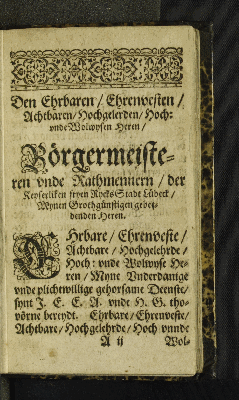 Den Ehrbaren / Ehrenvesten /
Achtbaren / Hochgelerden / Hoch:
vnde Wolwysen Heren /
Börgermeiste-
ren vnde Rathmennern / der
Keyserliken fryen Rycks Stadt Lübeck /
Mynen Grothgünstigen gebee-
denden Heren.
EHrbare / Ehrenveste /
Achtbare / Hochgelehrde /
Hoch: vnde Wolwyse He-
ren / Myne Vnderdanige
vnde plichtwillige gehorsame Deenste /
synt J. E. E. A. vnde H. G. tho-
vörne bereydt. Ehrbare / Ehrenveste /
Achtbare / Hochgelehrde / Hoch vnnde
A ii Wol-